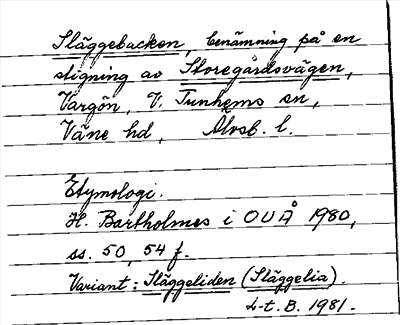 Släggebacken, benämning på en
stigning av Storegårdsvägen,
Vargön, V. Tunhems sn,
Väne hd, Älvsb. l.
Etymologi.
H. Bartholmes i OUÅ 1980,
ss. 50, 54 f.
Variant: Släggeliden (Släggelia).
B. 1981.